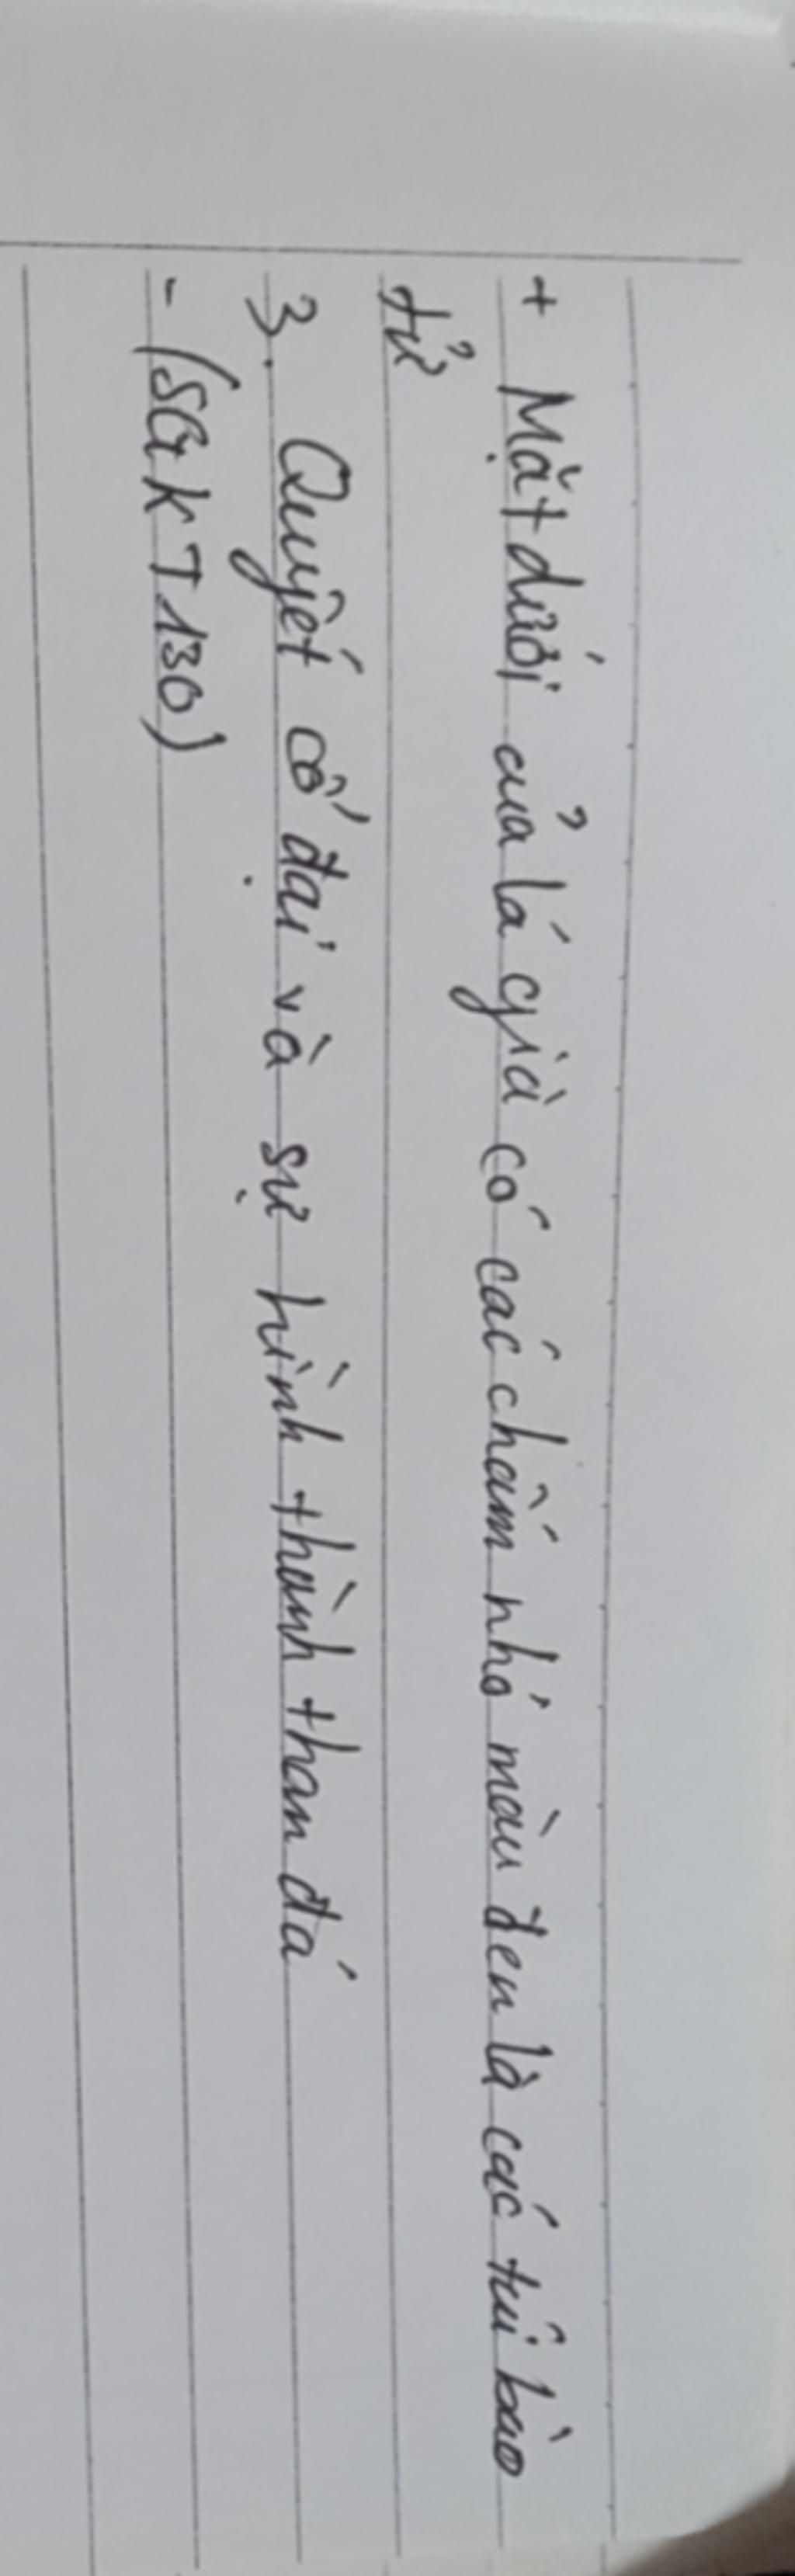 + Mặt dưới của lá già có các chấm nhỏ màu đen là các túi bào
tử
3. Quyết cổ đại và sự hình thành than đá
- (SGK T130)